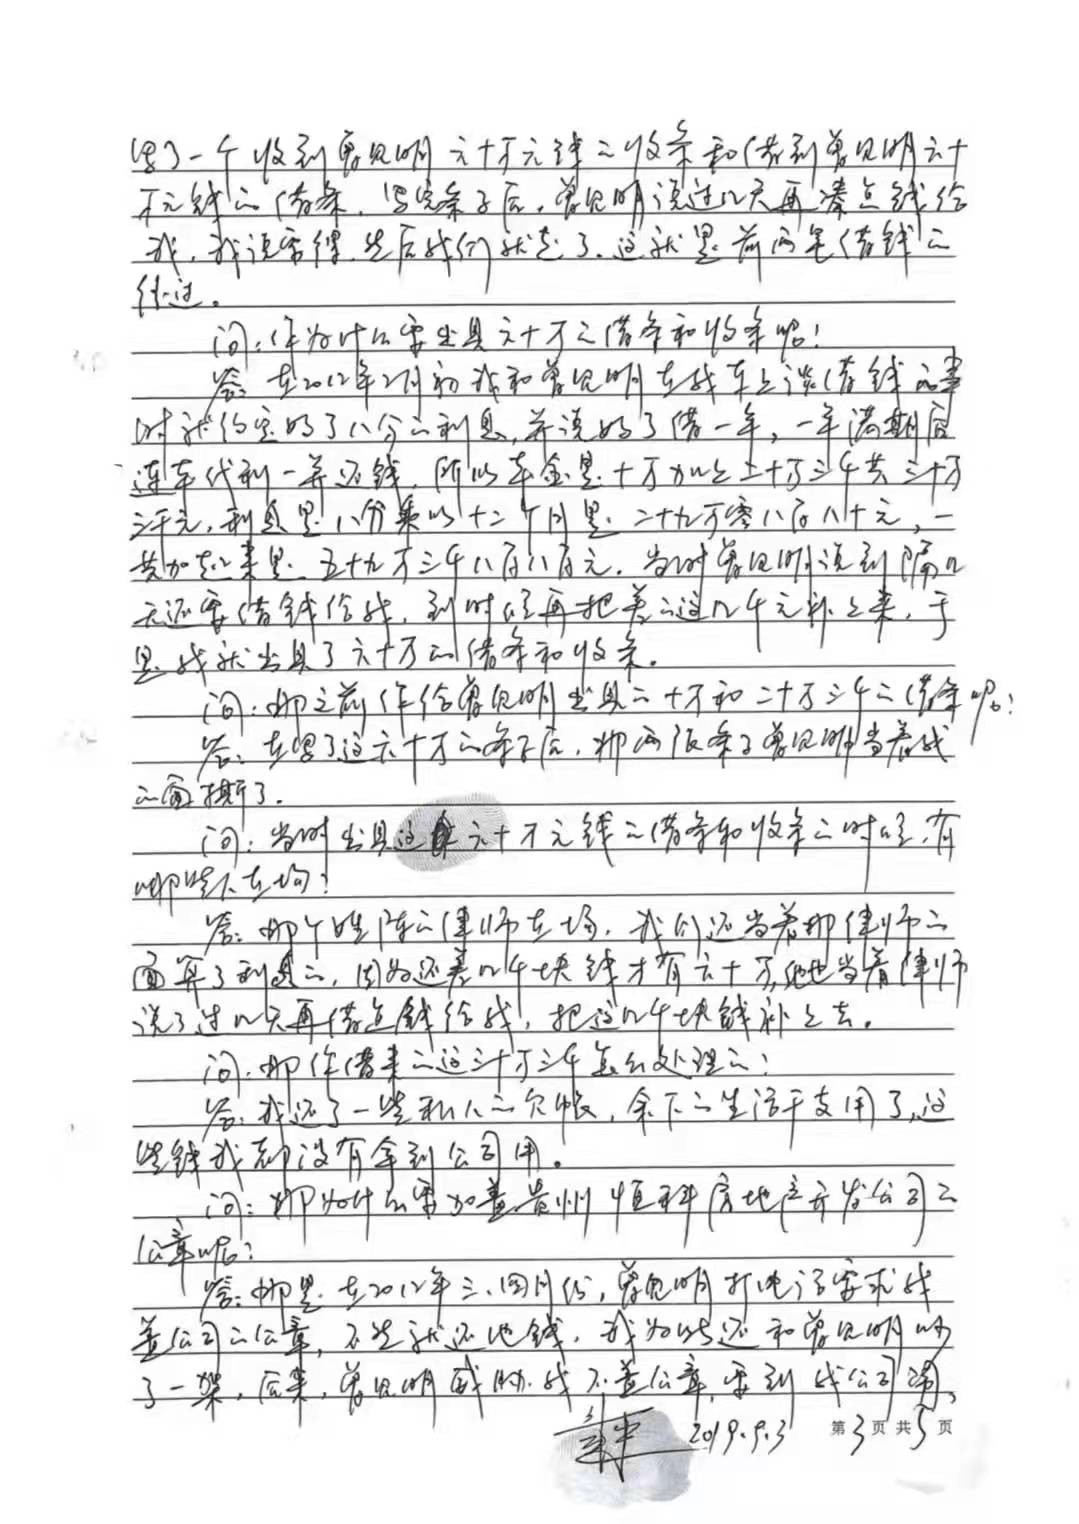 写了一个收到曾见明六十万元钱的收条和借到曾见明六十
万元钱的借条，写完条子后，曾见明说过几天再凑点钱给
我，我说要得，然后我们就走了。这就是前两笔借钱的
经过。
问：你为什么要出具六十万的借条和收条呢？
答：在2012年2月初我和曾见明在我车上谈借钱的事
时就约定好了八分的利息，并说好了借一年，一年满期后
连本代利一并还钱，所以本金是十万加上二十万三千共三十万
三千元，利息是八分乘以十二个月是二十九万零八百八十元，一
共加起来是五十九万三千八百八百元。当时曾见明说到隔几
天还要借钱给我，到时候再把差的这几千元补上来，于
是我就出具了六十万的借条和收条。
问：那之前你给曾见明出具的十万和二十万三千的借条呢？
答：在写了这六十万的条子后，那两张条子曾见明当着我
的面撕了。
问：当时出具这六十万元钱的借条和收条的时候，有
哪些人在场？
答：那个姓陈的律师在场，我们还当着那律师的
面算了利息的，因为还差几千块钱才有六十万，他当着律师
说了过几天再借点钱给我，把这几千块钱补上去。
问：那你借来的这三十万三千怎么处理的？
答：我还了一些私人的欠帐，余下的生活开支用了，这
些钱我都没有拿到公司用。
问：那为什么要加盖贵州恒科房地产开发公司的
公章呢？
答：那是在2012年三、四月份，曾见明打电话要求我
盖公司的公章，不然就还他钱，我为此还和曾见明吵
了一架，后来，曾见明威胁我不盖公章，要到我公司闹，
2019.9.3 第3页共5页